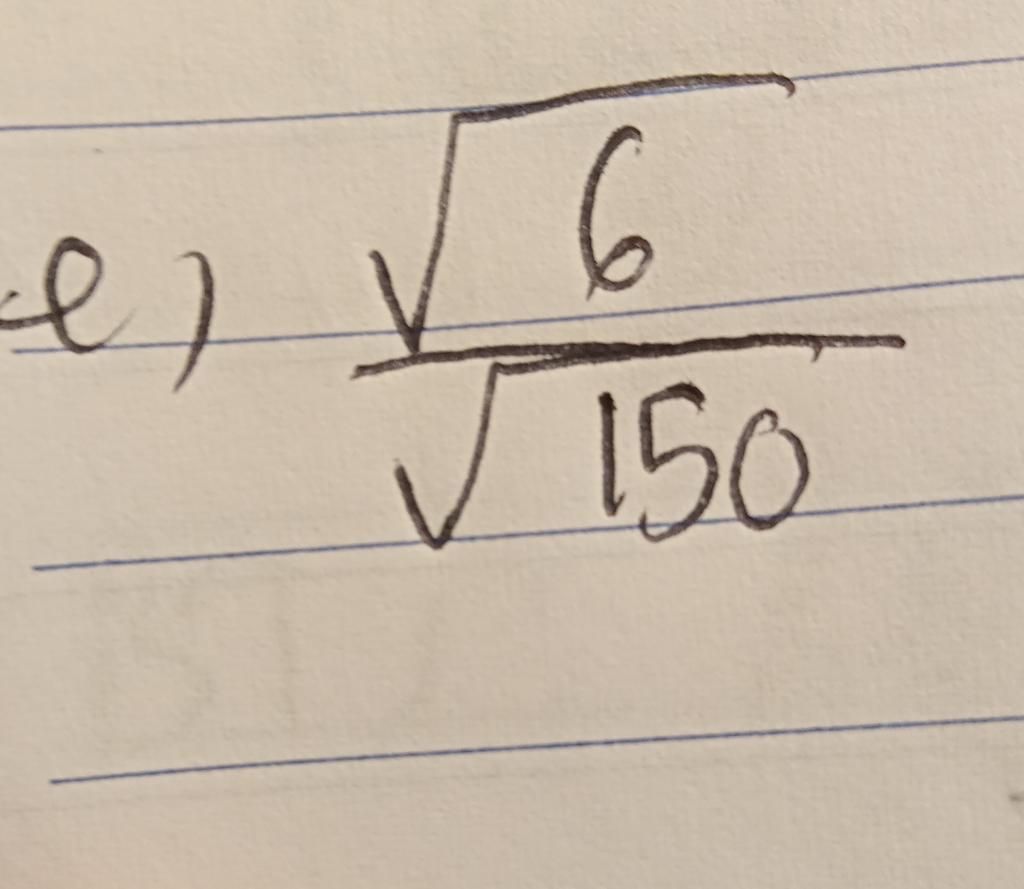 e) √6 / √150